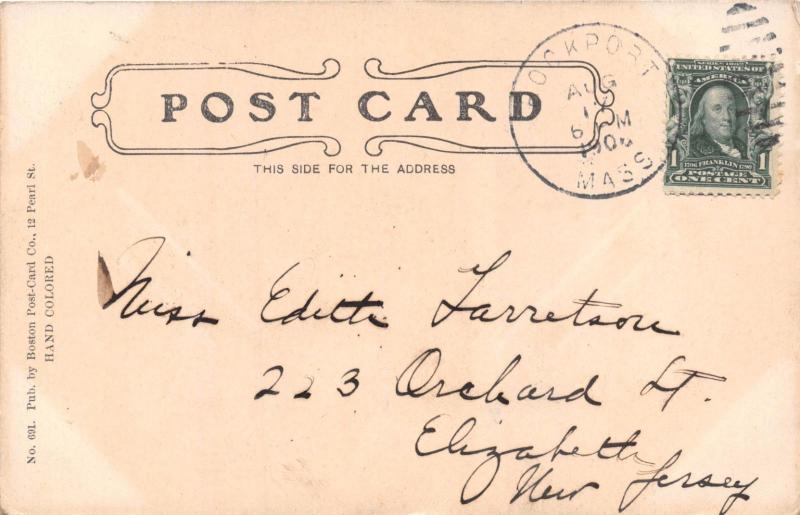 POST CARD
THIS SIDE FOR THE ADDRESS
ROCKPORT
AUG
6 M
MASS
SERIES 1902
UNITED STATES OF
AMERICA
1 FRANKLIN 1
POSTAGE
ONE CENT
Miss Edith Garretson
223 Orchard St.
Elizabeth
New Jersey
No. 691. Pub. by Boston Post-Card Co., 12 Pearl St.
HAND COLORED